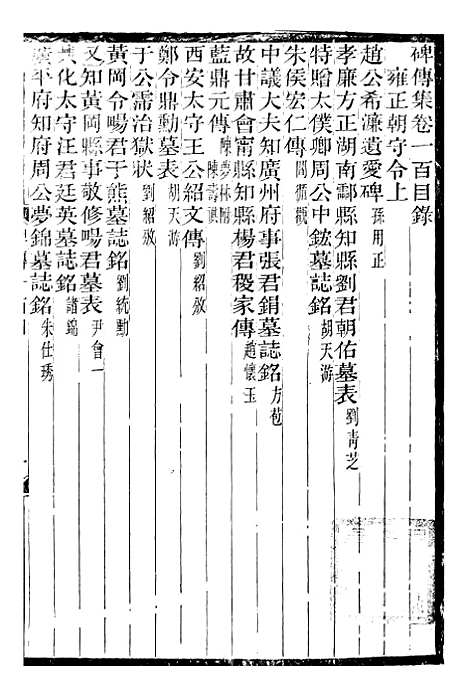 碑傳集卷一百目錄
雍正朝守令上
趙公希濂遺愛碑 孫用正
孝廉方正湖南酃縣知縣劉君朝佑墓表 劉青芝
特贈太僕卿周公中鋐墓誌銘 胡天游
朱侯宏仁傳 閻循觀
中議大夫知廣州府事張君鋗墓誌銘 方苞
故甘肅會甯縣知縣楊君稷家傳 趙懷玉
藍鼎元傳 陳夢林 陳壽祺
西安太守王公紹文傳 劉紹攽
鄭令鼎勳墓表 胡天游
于公霈治獄狀 劉紹攽
黃岡令暘君于熊墓誌銘 劉統勳
又知黃岡縣事敬修暘君墓表 尹會一
化太守汪君廷英墓誌銘 諸錦
平府知府周公夢錦墓誌銘 朱仕琇